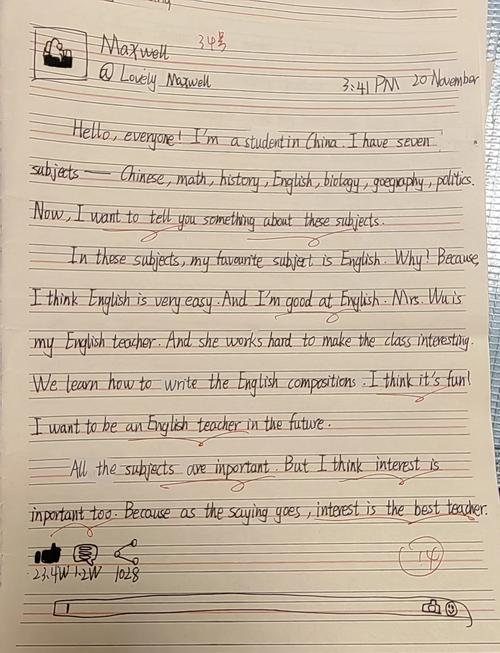 Maxwell 34号
@ Lovely Maxwell 3:41 PM 20 November
Hello, everyone! I'm a student in China. I have seven
subjects — Chinese, math, history, English, biology, goegraphy, politics.
Now, I want to tell you something about these subjects.
In these subjects, my favourite subject is English. Why! Because,
I think English is very easy. And I'm good at English. Mrs. Wu is
my English teacher. And she works hard to make the class interesting.
We learn how to write the English compositions. I think it's fun!
I want to be an English teacher in the future.
All the subjects are inportant. But I think interest is
inportant too. Because as the saying goes, interest is the best teacher.
14
23.4W 1.2W 1028